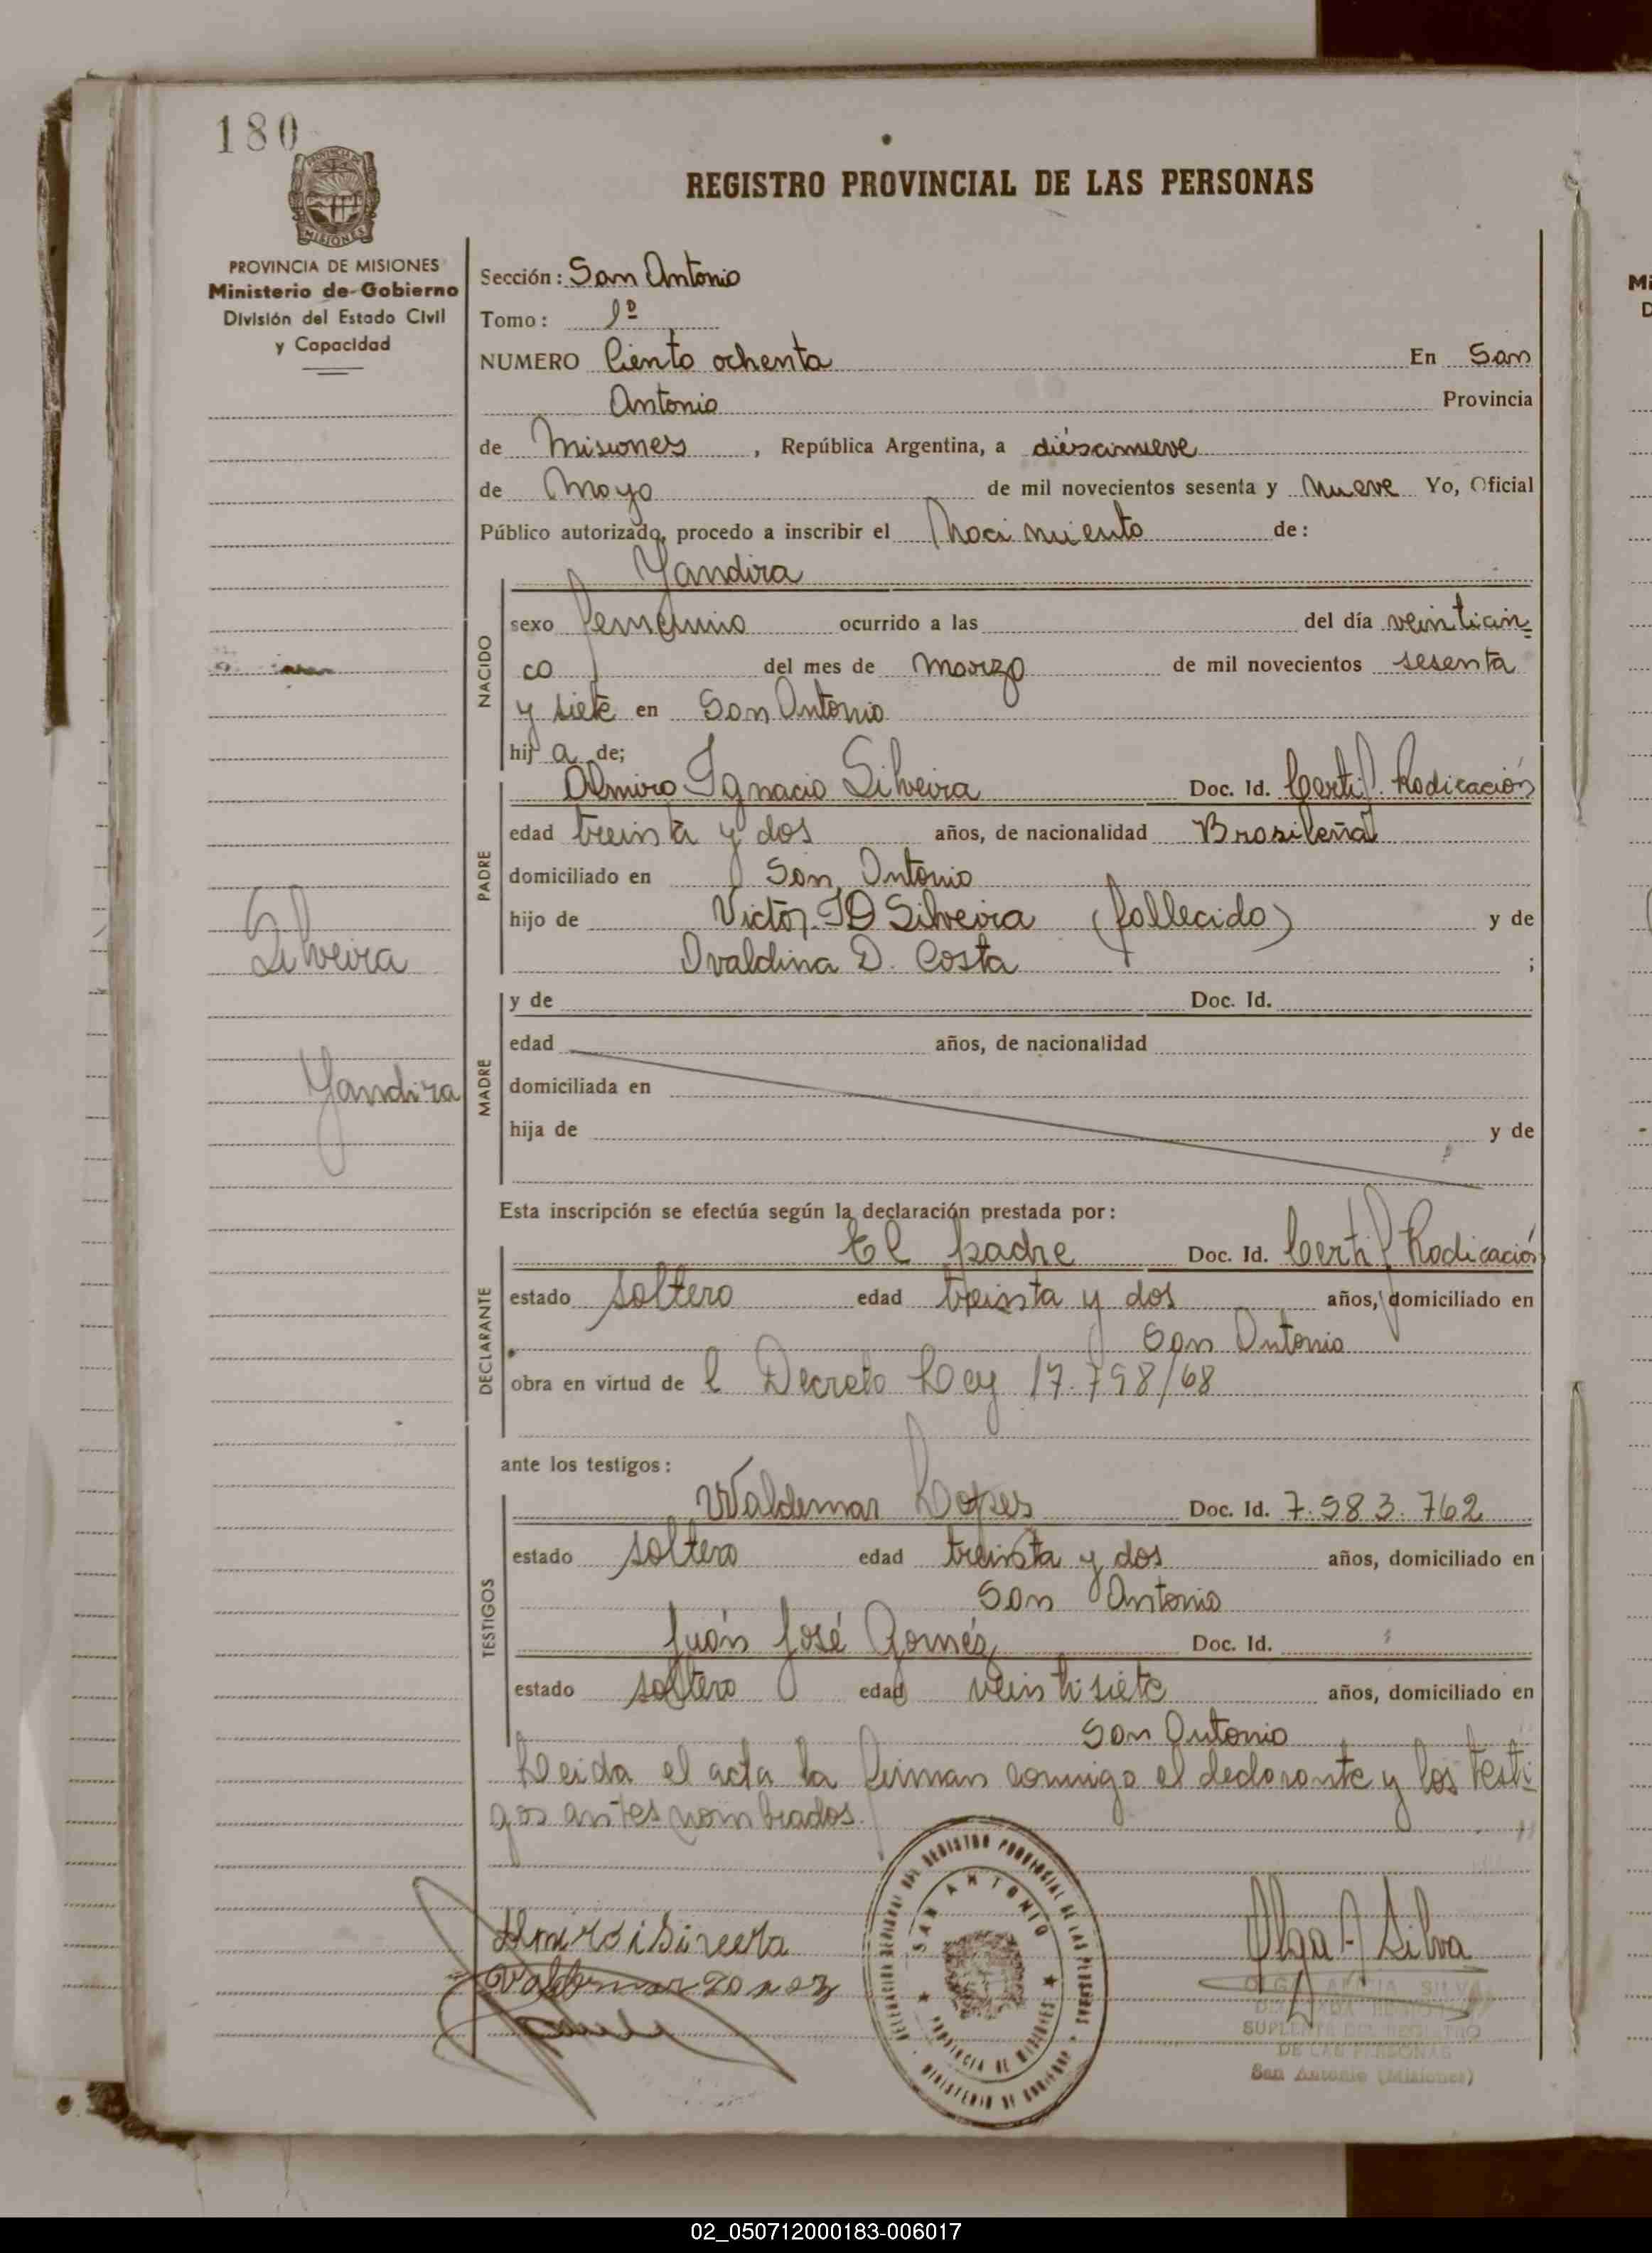 180
PROVINCIA DE MISIONES
Ministerio de Gobierno
División del Estado Civil
y Capacidad
REGISTRO PROVINCIAL DE LAS PERSONAS
Sección: San Antonio
Tomo: 1º
NUMERO Ciento ochenta En San
Antonio Provincia
de Misiones, República Argentina, a diescinueve
de Mayo de mil novecientos sesenta y Nueve Yo, Oficial
Público autorizado, procedo a inscribir el Nacimiento de:
Yandira
NACIDO
sexo femenino ocurrido a las del día veinticin=
co del mes de Marzo de mil novecientos sesenta
y siete en San Antonio
hij a de;
PADRE
Almiro Ignacio Silveira Doc. Id. Certif. Radicación
edad treinta y dos años, de nacionalidad Brasileña
domiciliado en San Antonio
hijo de Victor Silveira (fallecido) y de
Ovaldina D. Costa ;
Silveira
Yandira
MADRE
y de Doc. Id.
edad años, de nacionalidad
domiciliada en
hija de y de
Esta inscripción se efectúa según la declaración prestada por:
DECLARANTE
El padre Doc. Id. Certif Radicación
estado soltero edad treinta y dos años, domiciliado en
San Antonio
obra en virtud de l Decreto Ley 17.798/68
ante los testigos:
TESTIGOS
Waldemar Lopes Doc. Id. 7.983.762
estado soltero edad treinta y dos años, domiciliado en
San Antonio
Juán José Gomés Doc. Id.
estado soltero edad veintisiete años, domiciliado en
San Antonio
Leida el acta la firman conmigo el declarante y los testi
gos antes nombrados.
DEL REGISTRO PROVINCIAL DE LAS PERSONAS
SAN ANTONIO
PROVINCIA DE MISIONES
MINISTERIO DE GOBIERNO
Olga A Silva
SUPLENTE DEL REGISTRO
DE LAS PERSONAS
San Antonio (Misiones)
02_050712000183-006017